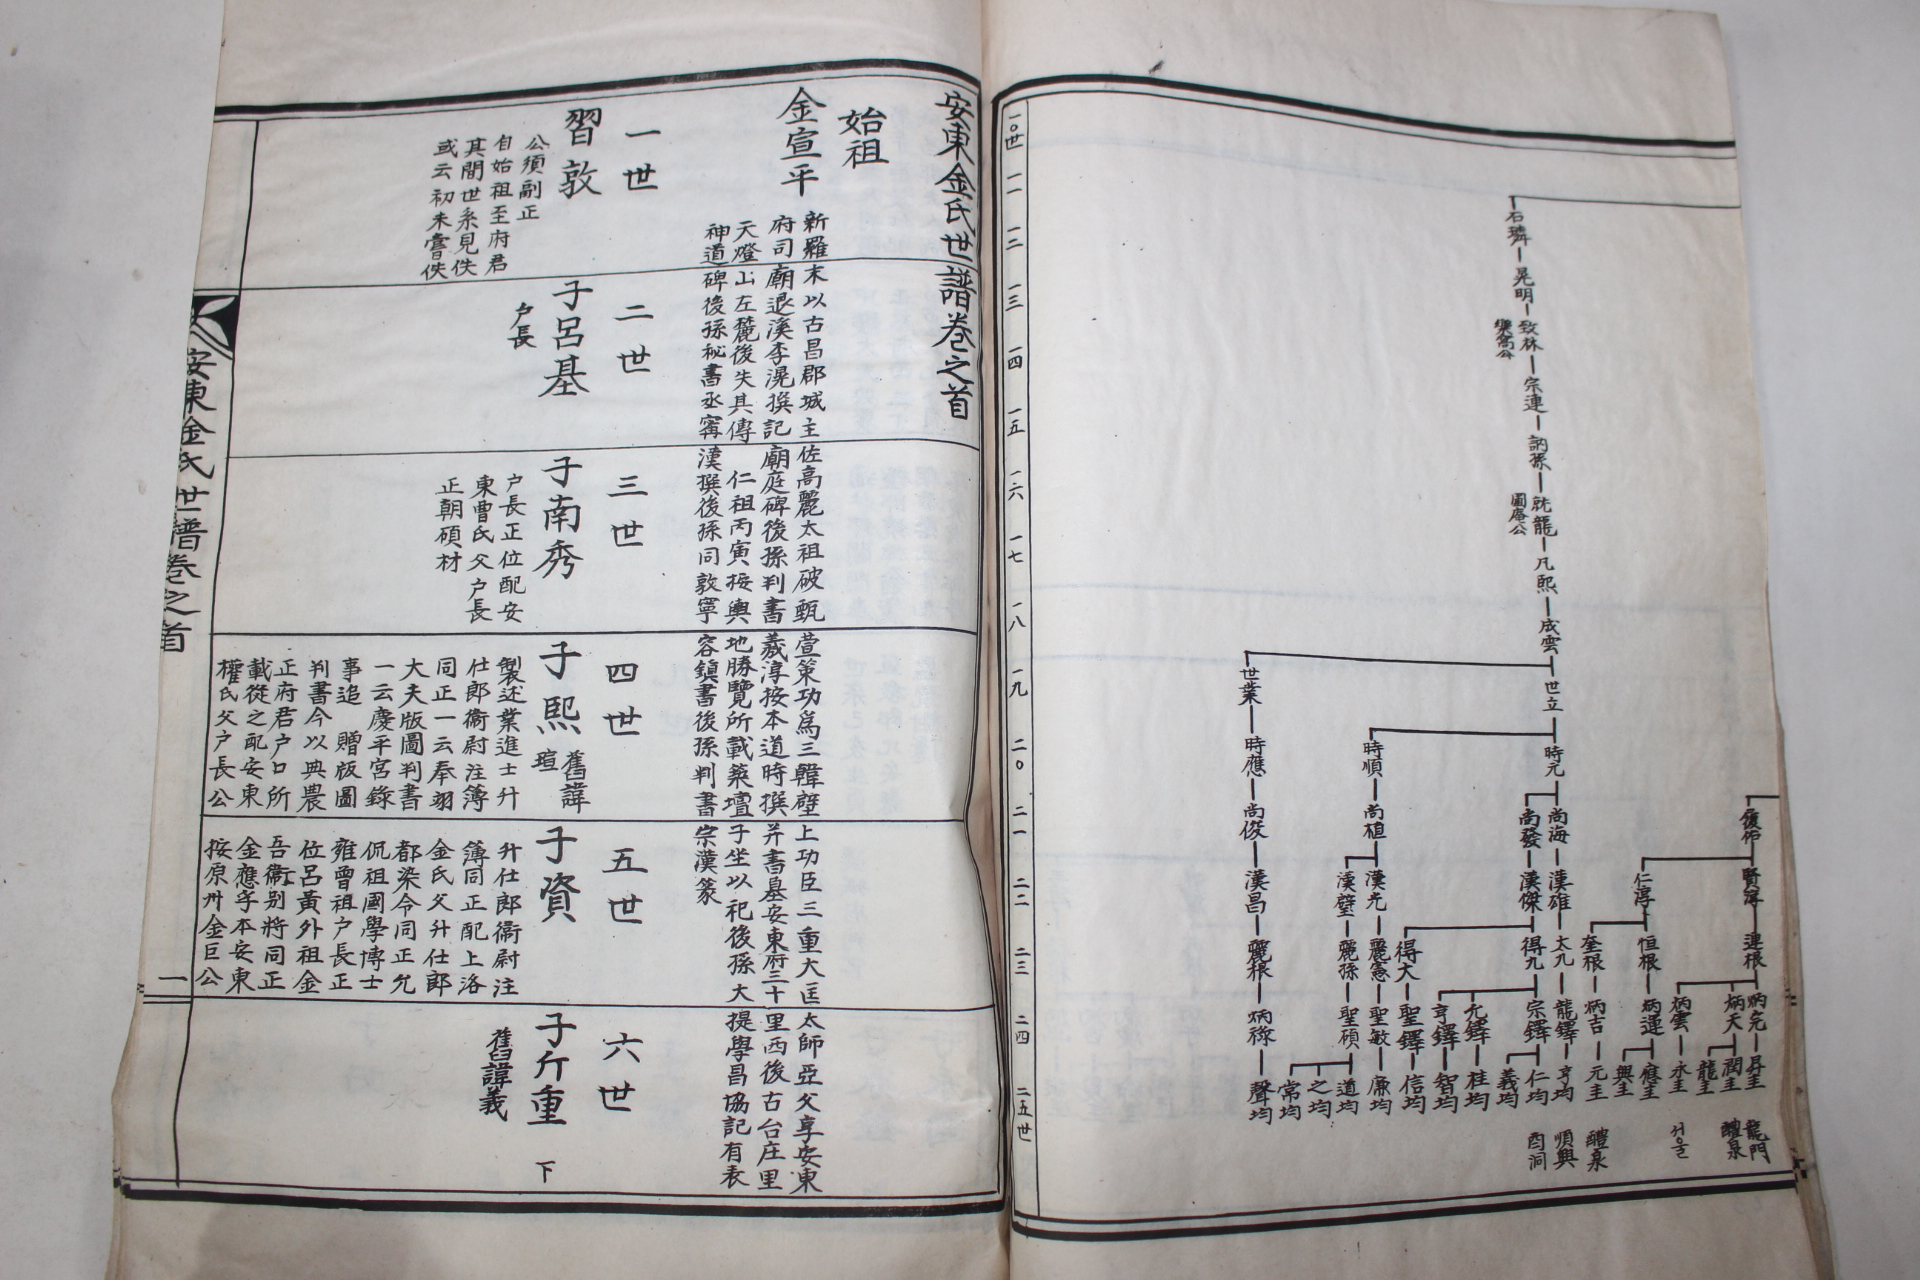 復佑
賢淳
仁淳
運根
恒根
奎根
炳元
炳天
炳雲
炳運
炳吉
昇圭
潤圭
龍圭
永圭
應圭
興圭
元圭
龍門
醴泉
서울
醴泉
石璘
晃明
致林
樂窩公
宗連
訥孫
就龍
圖庵公
凡熙
成雲
世立
世業
時元
時順
時應
尚海
尚發
尚植
尚俊
漢雄
漢傑
漢光
漢璧
漢昌
太九
得九
得大
麗憲
麗孫
麗根
龍鐸
宗鐸
元鐸
亨鐸
聖鐸
聖敏
聖碩
炳祿
亨均
仁均
義均
桂均
智均
信均
廉均
道均
之均
常均
聲均
順興
酉洞
一〇世
一一
一二
一三
一四
一五
一六
一七
一八
一九
二〇
二一
二二
二三
二四
二五世
安東金氏世譜卷之首
始祖
金宣平
新羅末以古昌郡城主佐高麗太祖破甄萱策功爲三韓壁上功臣三重大匡太師亞父享安東
府司廟退溪李滉撰記廟庭碑後孫判書羲淳按本道時撰并書墓安東府三十里西後古台庄里
天燈山左麓後失其傳 仁祖丙寅按輿地勝覽所載築壇子坐以祀後孫大提學昌協記有表
神道碑後孫秘書丞甯漢撰後孫同敦寧容鎮書後孫判書宗漢篆
一世
習敦
公須副正
自始祖至府君
其間世系見佚
或云初未嘗佚
二世
子呂基
户長
三世
子南秀
户長正位配安
東曹氏父户長
正朝碩材
四世
子熙
舊諱
瑄
製述業進士升
仕郎衛尉注簿
同正一云奉翊
大夫版圖判書
一云慶平宮錄
事追 贈版圖
判書今以典農
正府君户口所
載從之配安東
權氏父户長公
五世
子資
升仕郎衛尉注
簿同正配上洛
金氏父升仕郎
都染令同正允
侃祖國學博士
雍曾祖户長正
位呂黃外祖金
吾衛别將同正
金應孚本安東
按原州金巨公
六世
子斤重
舊諱義
下
安東金氏世譜卷之首
一